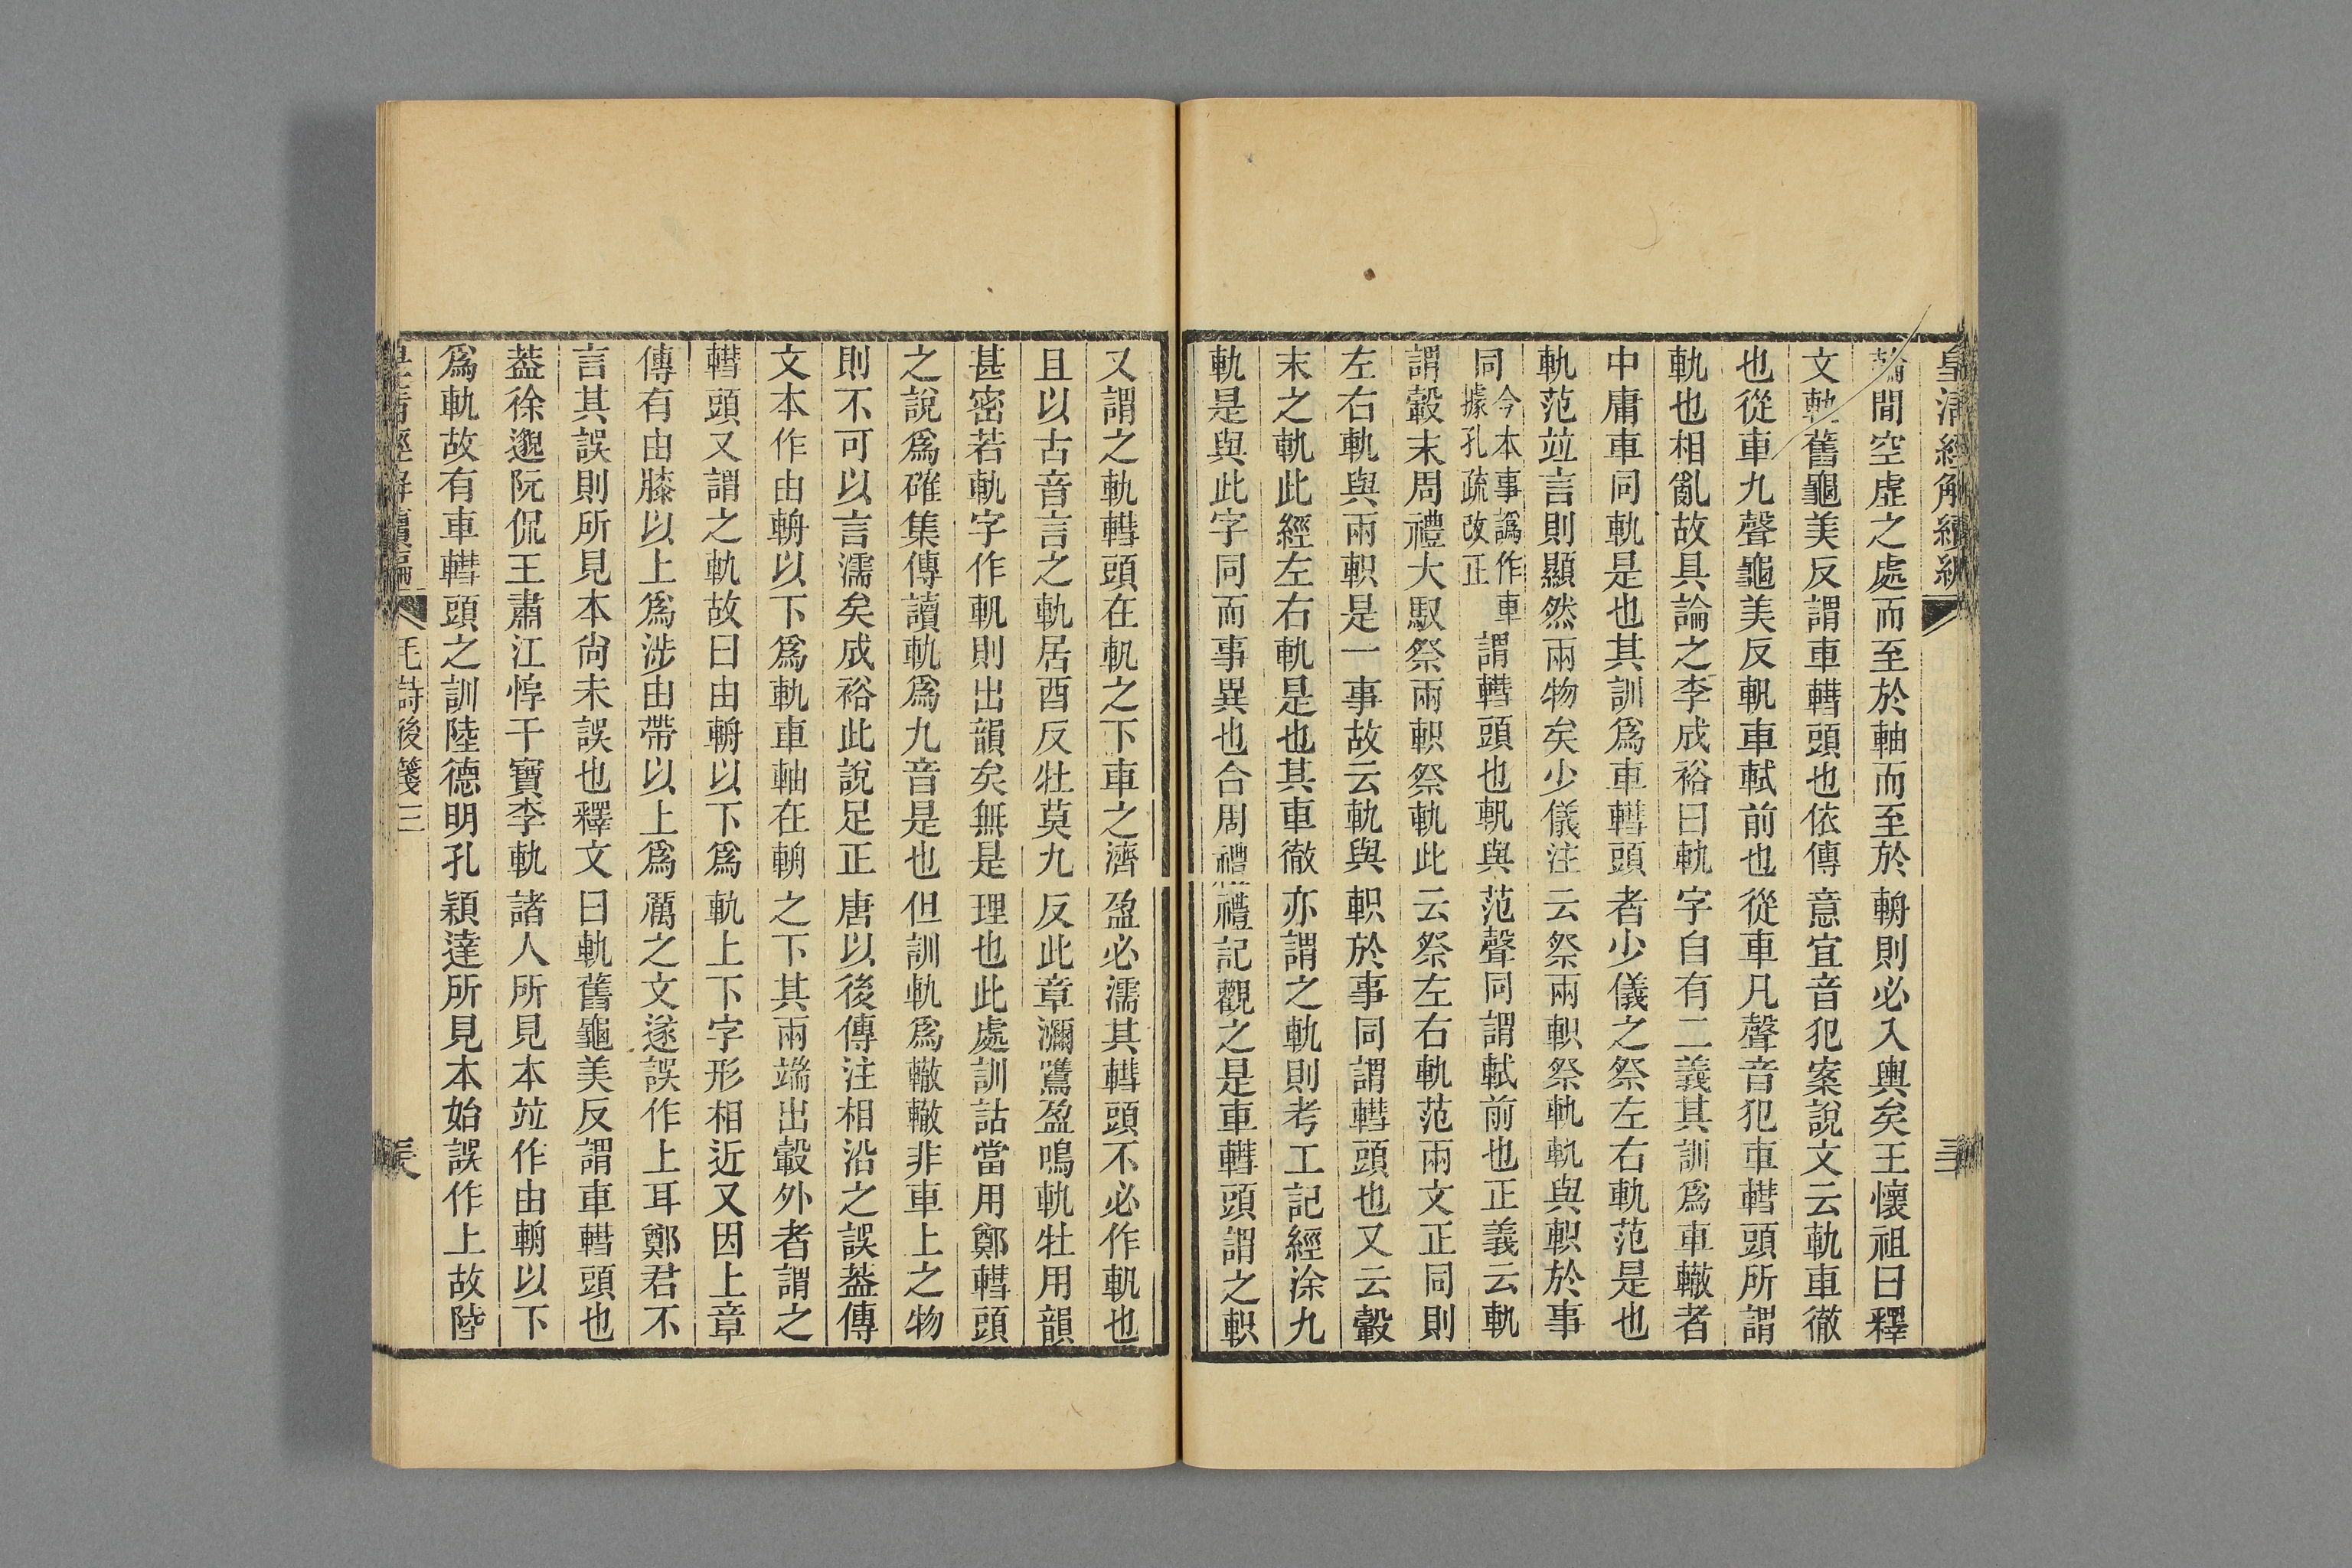 皇清經解續編
三
輪間空虛之處而至於軸而至於輈則必入輿矣王懷祖曰釋
文軌舊龜美反謂車轊頭也依傳意宜音犯案說文云軌車徹
也從車九聲龜美反軓車軾前也從車凡聲音犯車轊頭所謂
軌也相亂故具論之李成裕曰軌字自有二義其訓爲車轍者
中庸車同軌是也其訓爲車轊頭者少儀之祭左右軌范是也
軌范竝言則顯然兩物矣少儀注云祭兩軹祭軌軌與軹於事
同今本事譌作車據孔疏改正謂轊頭也軓與范聲同謂軾前也正義云軌
謂轂末周禮大馭祭兩軹祭軌此云祭左右軌范兩文正同則
左右軌與兩軹是一事故云軌與軹於事同謂轊頭也又云轂
末之軌此經左右軌是也其車徹亦謂之軌則考工記經涂九
軌是與此字同而事異也合周禮禮記觀之是車轊頭謂之軹
又謂之軌轊頭在軓之下車之濟盈必濡其轊頭不必作軓也
且以古音言之軌居酉反牡莫九反此章瀰鷕盈鳴軌牡用韻
甚密若軌字作軓則出韻矣無是理也此處訓詁當用鄭轊頭
之說爲確集傳讀軌爲九音是也但訓軌爲轍轍非車上之物
則不可以言濡矣成裕此說足正唐以後傳注相沿之誤葢傳
文本作由輈以下爲軌車軸在輈之下其兩端出轂外者謂之
轊頭又謂之軌故曰由輈以下爲軌上下字形相近又因上章
傳有由膝以上爲涉由帶以上爲厲之文遂誤作上耳鄭君不
言其誤則所見本尙未誤也釋文曰軌舊龜美反謂車轊頭也
葢徐邈阮侃王肅江惇干寶李軌諸人所見本竝作由輈以下
爲軌故有車轊頭之訓陸德明孔穎達所見本始誤作上故陸
皇清經解續編
毛詩後箋三